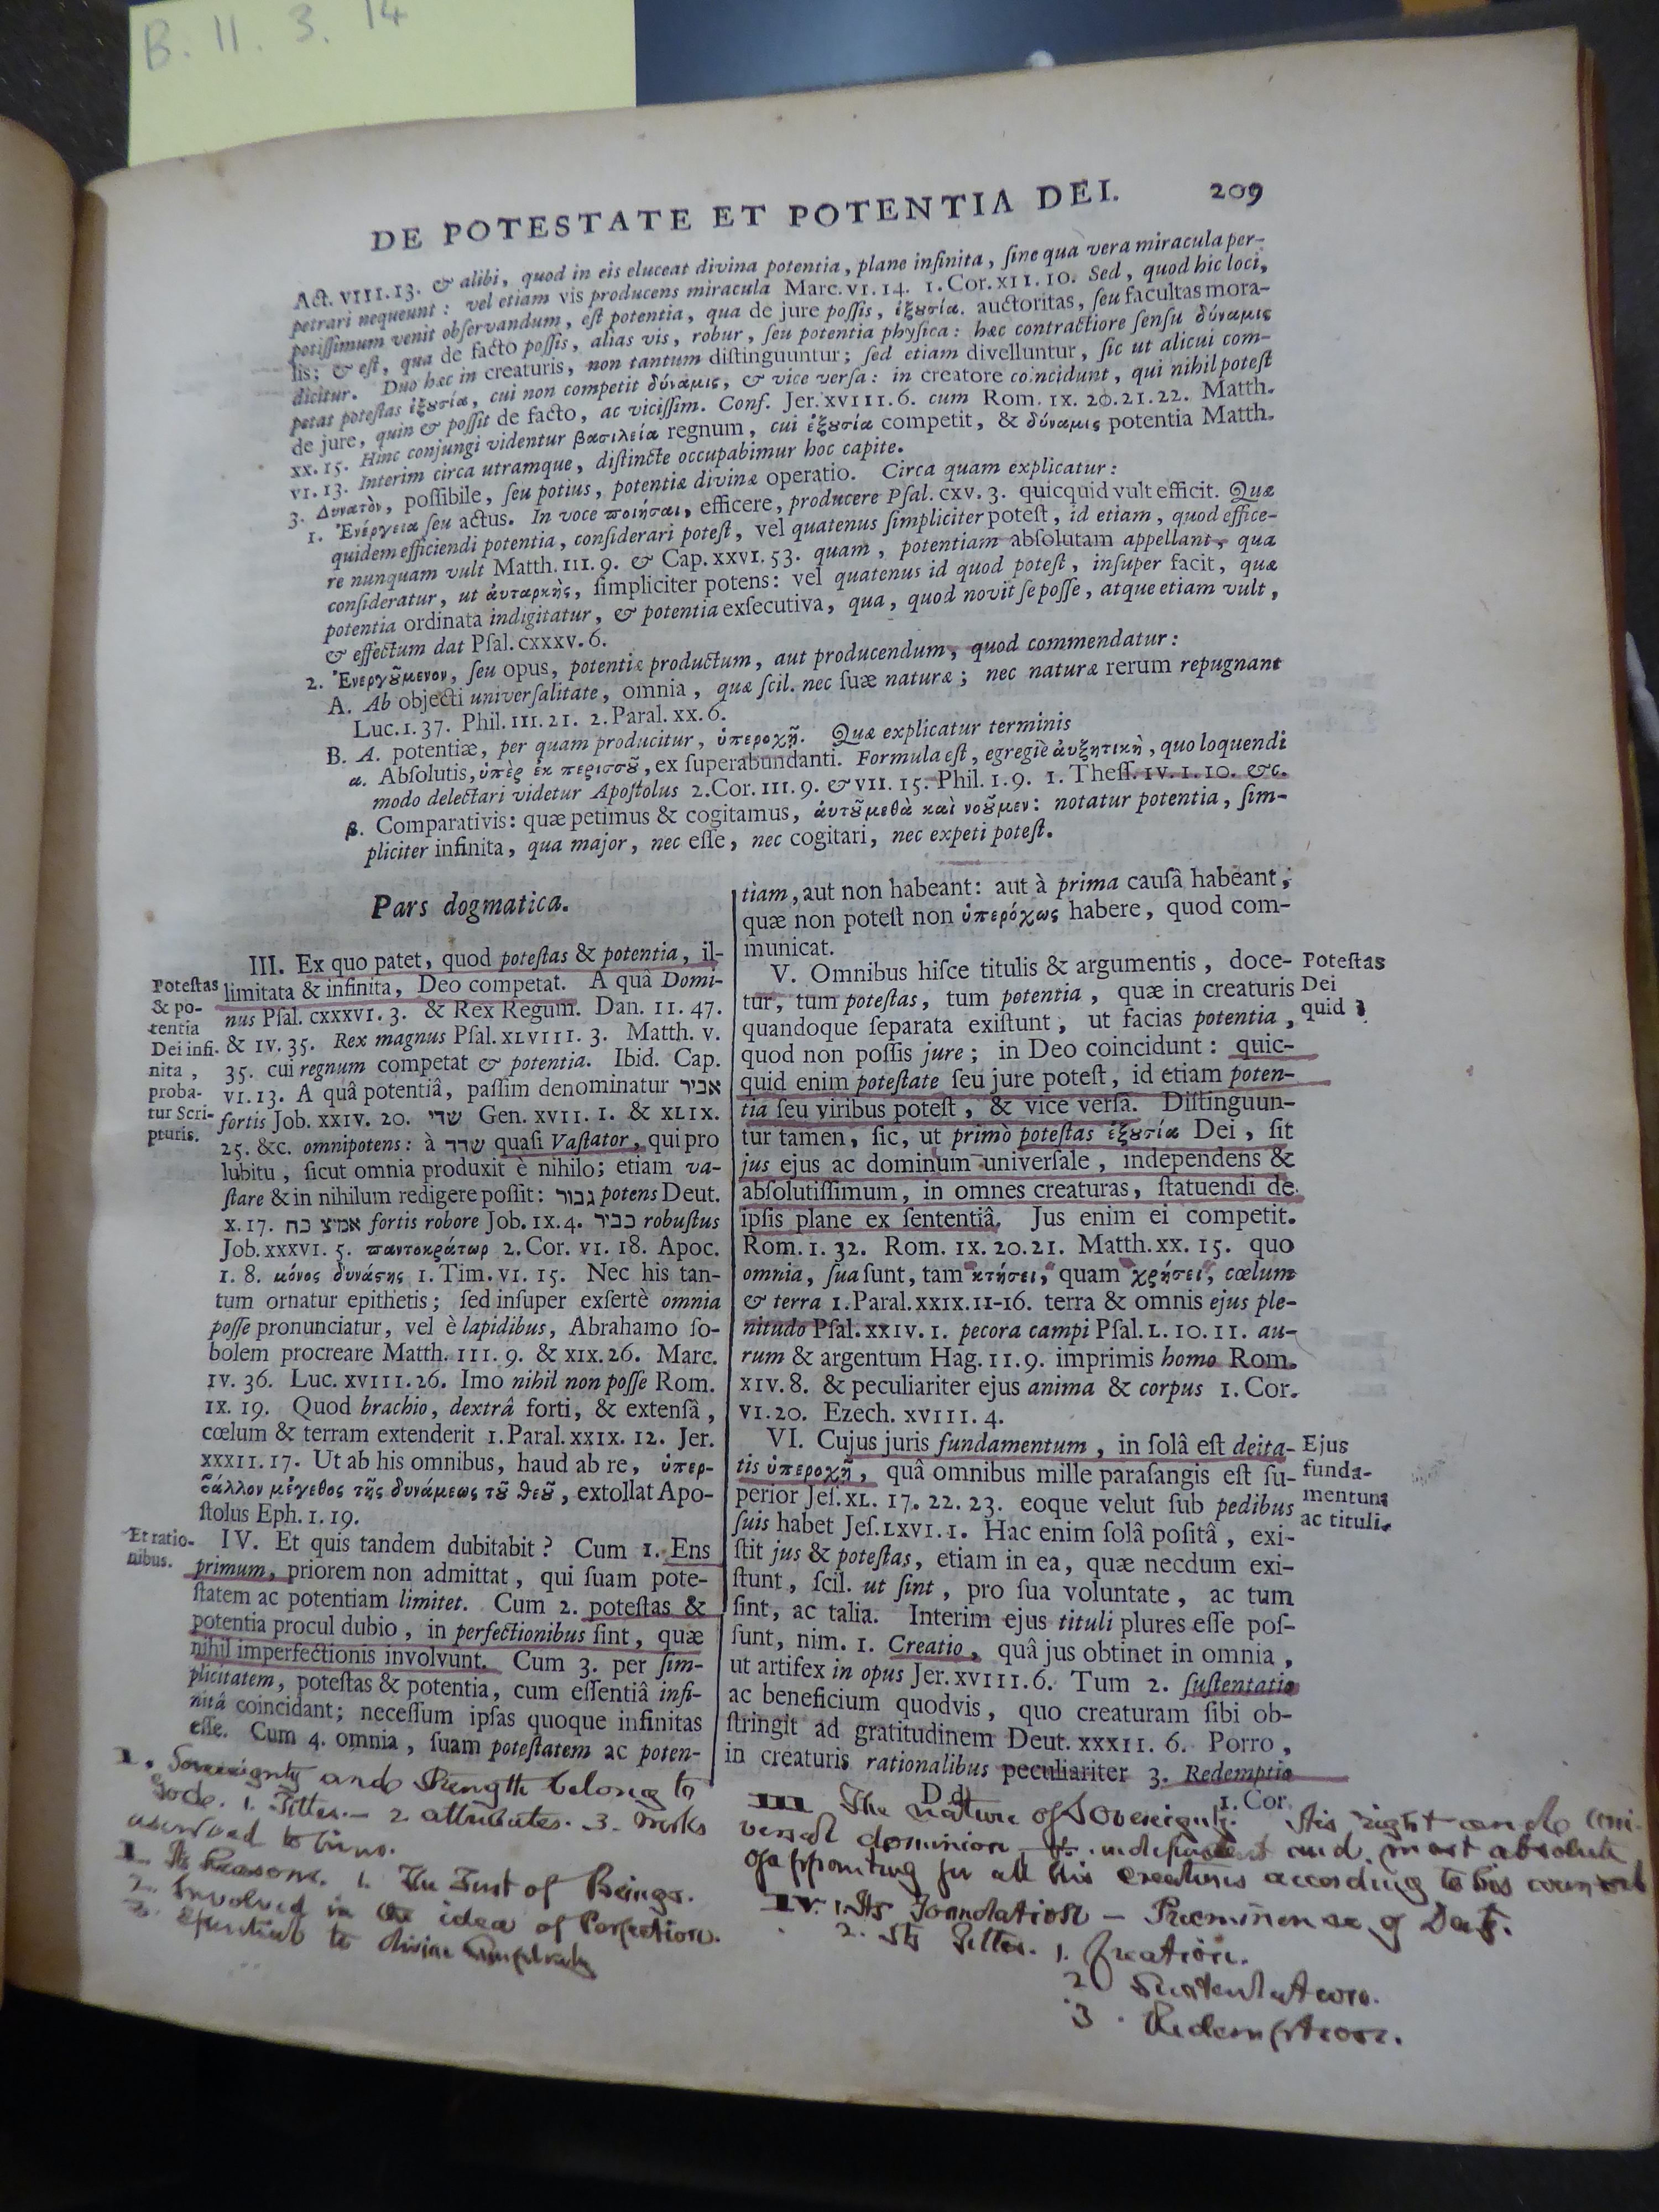 B. 11. 3. 14
DE POTESTATE ET POTENTIA DEI. 209
Act. VIII. 13. & alibi, quod in eis eluceat divina potentia, plane infinita, ſine qua vera miracula per-
petrari nequeunt: vel etiam vis producens miracula Marc. VI. 14. 1. Cor. XII. 10. Sed, quod hic loci,
potiſſimum venit obſervandum, eſt potentia, qua de jure poſſis, ἐξȣσία. auctoritas, ſeu facultas mora-
lis; & eſt, qua de facto poſſis, alias vis, robur, ſeu potentia phyſica: hæc contractiore ſenſu δύναμις
dicitur. Duo hæc in creaturis, non tantum diſtinguuntur; ſed etiam divelluntur, ſic ut alicui com-
petat poteſtas ἐξȣσία, cui non competit δύναμις, & vice verſa: in creatore coincidunt, qui nihil poteſt
de jure, quin & poſſit de facto, ac viciſſim. Conf. Jer. XVIII. 6. cum Rom. IX. 20. 21. 22. Matth.
XX. 15. Hinc conjungi videntur βασιλεία regnum, cui ἐξȣσία competit, & δύναμις potentia Matth.
VI. 13. Interim circa utramque, diſtincte occupabimur hoc capite.
3. Δυνατὸν, poſſibile, ſeu potius, potentiæ divinæ operatio. Circa quam explicatur:
1. Ἐνέργεια ſeu actus. In voce ποιῆσαι, efficere, producere Pſal. CXV. 3. quicquid vult efficit. Quæ
quidem efficiendi potentia, conſiderari poteſt, vel quatenus ſimpliciter poteſt, id etiam, quod effice-
re nunquam vult Matth. III. 9. & Cap. XXVI. 53. quam, potentiam abſolutam appellant, qua
conſideratur, ut ἀυταρκὴς, ſimpliciter potens: vel quatenus id quod poteſt, inſuper facit, quæ
potentia ordinata indigitatur, & potentia exſecutiva, qua, quod novit ſe poſſe, atque etiam vult,
& effectum dat Pſal. CXXXV. 6.
2. Ἐνεργȣ͂μενον, ſeu opus, potentiæ productum, aut producendum, quod commendatur:
A. Ab objecti univerſalitate, omnia, quæ ſcil. nec ſuæ naturæ; nec naturæ rerum repugnant
Luc. I. 37. Phil. III. 21. 2. Paral. XX. 6.
B. A. potentiæ, per quam producitur, ὑπεροχῇ. Quæ explicatur terminis
α. Abſolutis, ὑπὲρ ἐκ περισσȣ͂, ex ſuperabundanti. Formula eſt, egregiè ἀυξητικὴ, quo loquendi
modo delectari videtur Apoſtolus 2. Cor. III. 9. & VII. 15. Phil. I. 9. 1. Theſſ. IV. 1. 10. &c.
β. Comparativis: quæ petimus & cogitamus, ἀυτȣ͂μεθὰ καὶ νοȣ͂μεν: notatur potentia, ſim-
pliciter infinita, qua major, nec eſſe, nec cogitari, nec expeti poteſt.
Pars dogmatica.
Poteſtas
& po-
tentia
Dei infi-
nita,
proba-
tur Scri-
pturis.
III. Ex quo patet, quod poteſtas & potentia, il-
limitata & infinita, Deo competat. A quâ Domi-
nus Pſal. CXXXVI. 3. & Rex Regum. Dan. II. 47.
& IV. 35. Rex magnus Pſal. XLVIII. 3. Matth. V.
35. cui regnum competat & potentia. Ibid. Cap.
VI. 13. A quâ potentiâ, paſſim denominatur אביר
fortis Job. XXIV. 20. שדי Gen. XVII. 1. & XLIX.
25. &c. omnipotens: à שדד quaſi Vaſtator, qui pro
lubitu, ſicut omnia produxit è nihilo; etiam va-
ſtare & in nihilum redigere poſſit: גבור potens Deut.
X. 17. אמיץ כח fortis robore Job. IX. 4. כביר robuſtus
Job. XXXVI. 5. παντοκράτωρ 2. Cor. VI. 18. Apoc.
I. 8. μόνος δυνάστης 1. Tim. VI. 15. Nec his tan-
tum ornatur epithetis; ſed inſuper exſertè omnia
poſſe pronunciatur, vel è lapidibus, Abrahamo ſo-
bolem procreare Matth. III. 9. & XIX. 26. Marc.
IV. 36. Luc. XVIII. 26. Imo nihil non poſſe Rom.
IX. 19. Quod brachio, dextrâ forti, & extenſâ,
cœlum & terram extenderit 1. Paral. XXIX. 12. Jer.
XXXII. 17. Ut ab his omnibus, haud ab re, ὑπερ-
βάλλον μέγεθος τῆς δυνάμεως τȣ͂ θεȣ͂, extollat Apo-
ſtolus Eph. I. 19.
Et ratio-
nibus.
IV. Et quis tandem dubitabit? Cum 1. Ens
primum, priorem non admittat, qui ſuam pote-
ſtatem ac potentiam limitet. Cum 2. poteſtas &
potentia procul dubio, in perfectionibus ſint, quæ
nihil imperfectionis involvunt. Cum 3. per ſim-
plicitatem, poteſtas & potentia, cum eſſentiâ infi-
nitâ coincidant; neceſſum ipſas quoque infinitas
eſſe. Cum 4. omnia, ſuam poteſtatem ac poten-
tiam, aut non habeant: aut à prima cauſâ habeant;
quæ non poteſt non ὑπερόχως habere, quod com-
municat.
V. Omnibus hiſce titulis & argumentis, doce-
tur, tum poteſtas, tum potentia, quæ in creaturis
quandoque ſeparata exiſtunt, ut facias potentia,
quod non poſſis jure; in Deo coincidunt: quic-
quid enim poteſtate ſeu jure poteſt, id etiam poten-
tia ſeu viribus poteſt, & vice verſa. Diſtinguun-
tur tamen, ſic, ut primò poteſtas ἐξȣσία Dei, ſit
jus ejus ac dominum univerſale, independens &
abſolutiſſimum, in omnes creaturas, ſtatuendi de
ipſis plane ex ſententiâ. Jus enim ei competit.
Rom. I. 32. Rom. IX. 20. 21. Matth. XX. 15. quo
omnia, ſua ſunt, tam κτήσει, quam χρήσει, cœlum
& terra 1. Paral. XXIX. 11-16. terra & omnis ejus ple-
nitudo Pſal. XXIV. 1. pecora campi Pſal. L. 10. 11. au-
rum & argentum Hag. II. 9. imprimis homo Rom.
XIV. 8. & peculiariter ejus anima & corpus 1. Cor.
VI. 20. Ezech. XVIII. 4.
Poteſtas
Dei
quid?
VI. Cujus juris fundamentum, in ſolâ eſt deita-
tis ὑπεροχῇ, quâ omnibus mille paraſangis eſt ſu-
perior Jeſ. XL. 17. 22. 23. eoque velut ſub pedibus
ſuis habet Jeſ. LXVI. 1. Hac enim ſolâ poſitâ, exi-
ſtit jus & poteſtas, etiam in ea, quæ necdum exi-
ſtunt, ſcil. ut ſint, pro ſua voluntate, ac tum
ſint, ac talia. Interim ejus tituli plures eſſe poſ-
ſunt, nim. 1. Creatio, quâ jus obtinet in omnia,
ut artifex in opus Jer. XVIII. 6. Tum 2. ſuſtentatio
ac beneficium quodvis, quo creaturam ſibi ob-
ſtringit ad gratitudinem Deut. XXXII. 6. Porro,
in creaturis rationalibus peculiariter 3. Redemptio
Ejus
funda-
mentum
ac tituli.
D d 1. Cor.
I. Sovereignty and Strength belong to
God. 1. Titles.— 2. attributes. 3. works
ascribed to him.
I. Its Reasons. 1. The First of Beings.
2. Involved in the idea of Perfection.
3. Essential to divine Simplicity
III The nature of Sovereignty. His right and uni-
versal dominion independent and most absolute
of appointing for all his creatures according to his counsel
IV. 1. Its Foundation — Preeminence of Deity.
2. Its Titles. 1. Creation.
2 Sustentation.
3. Redemption.